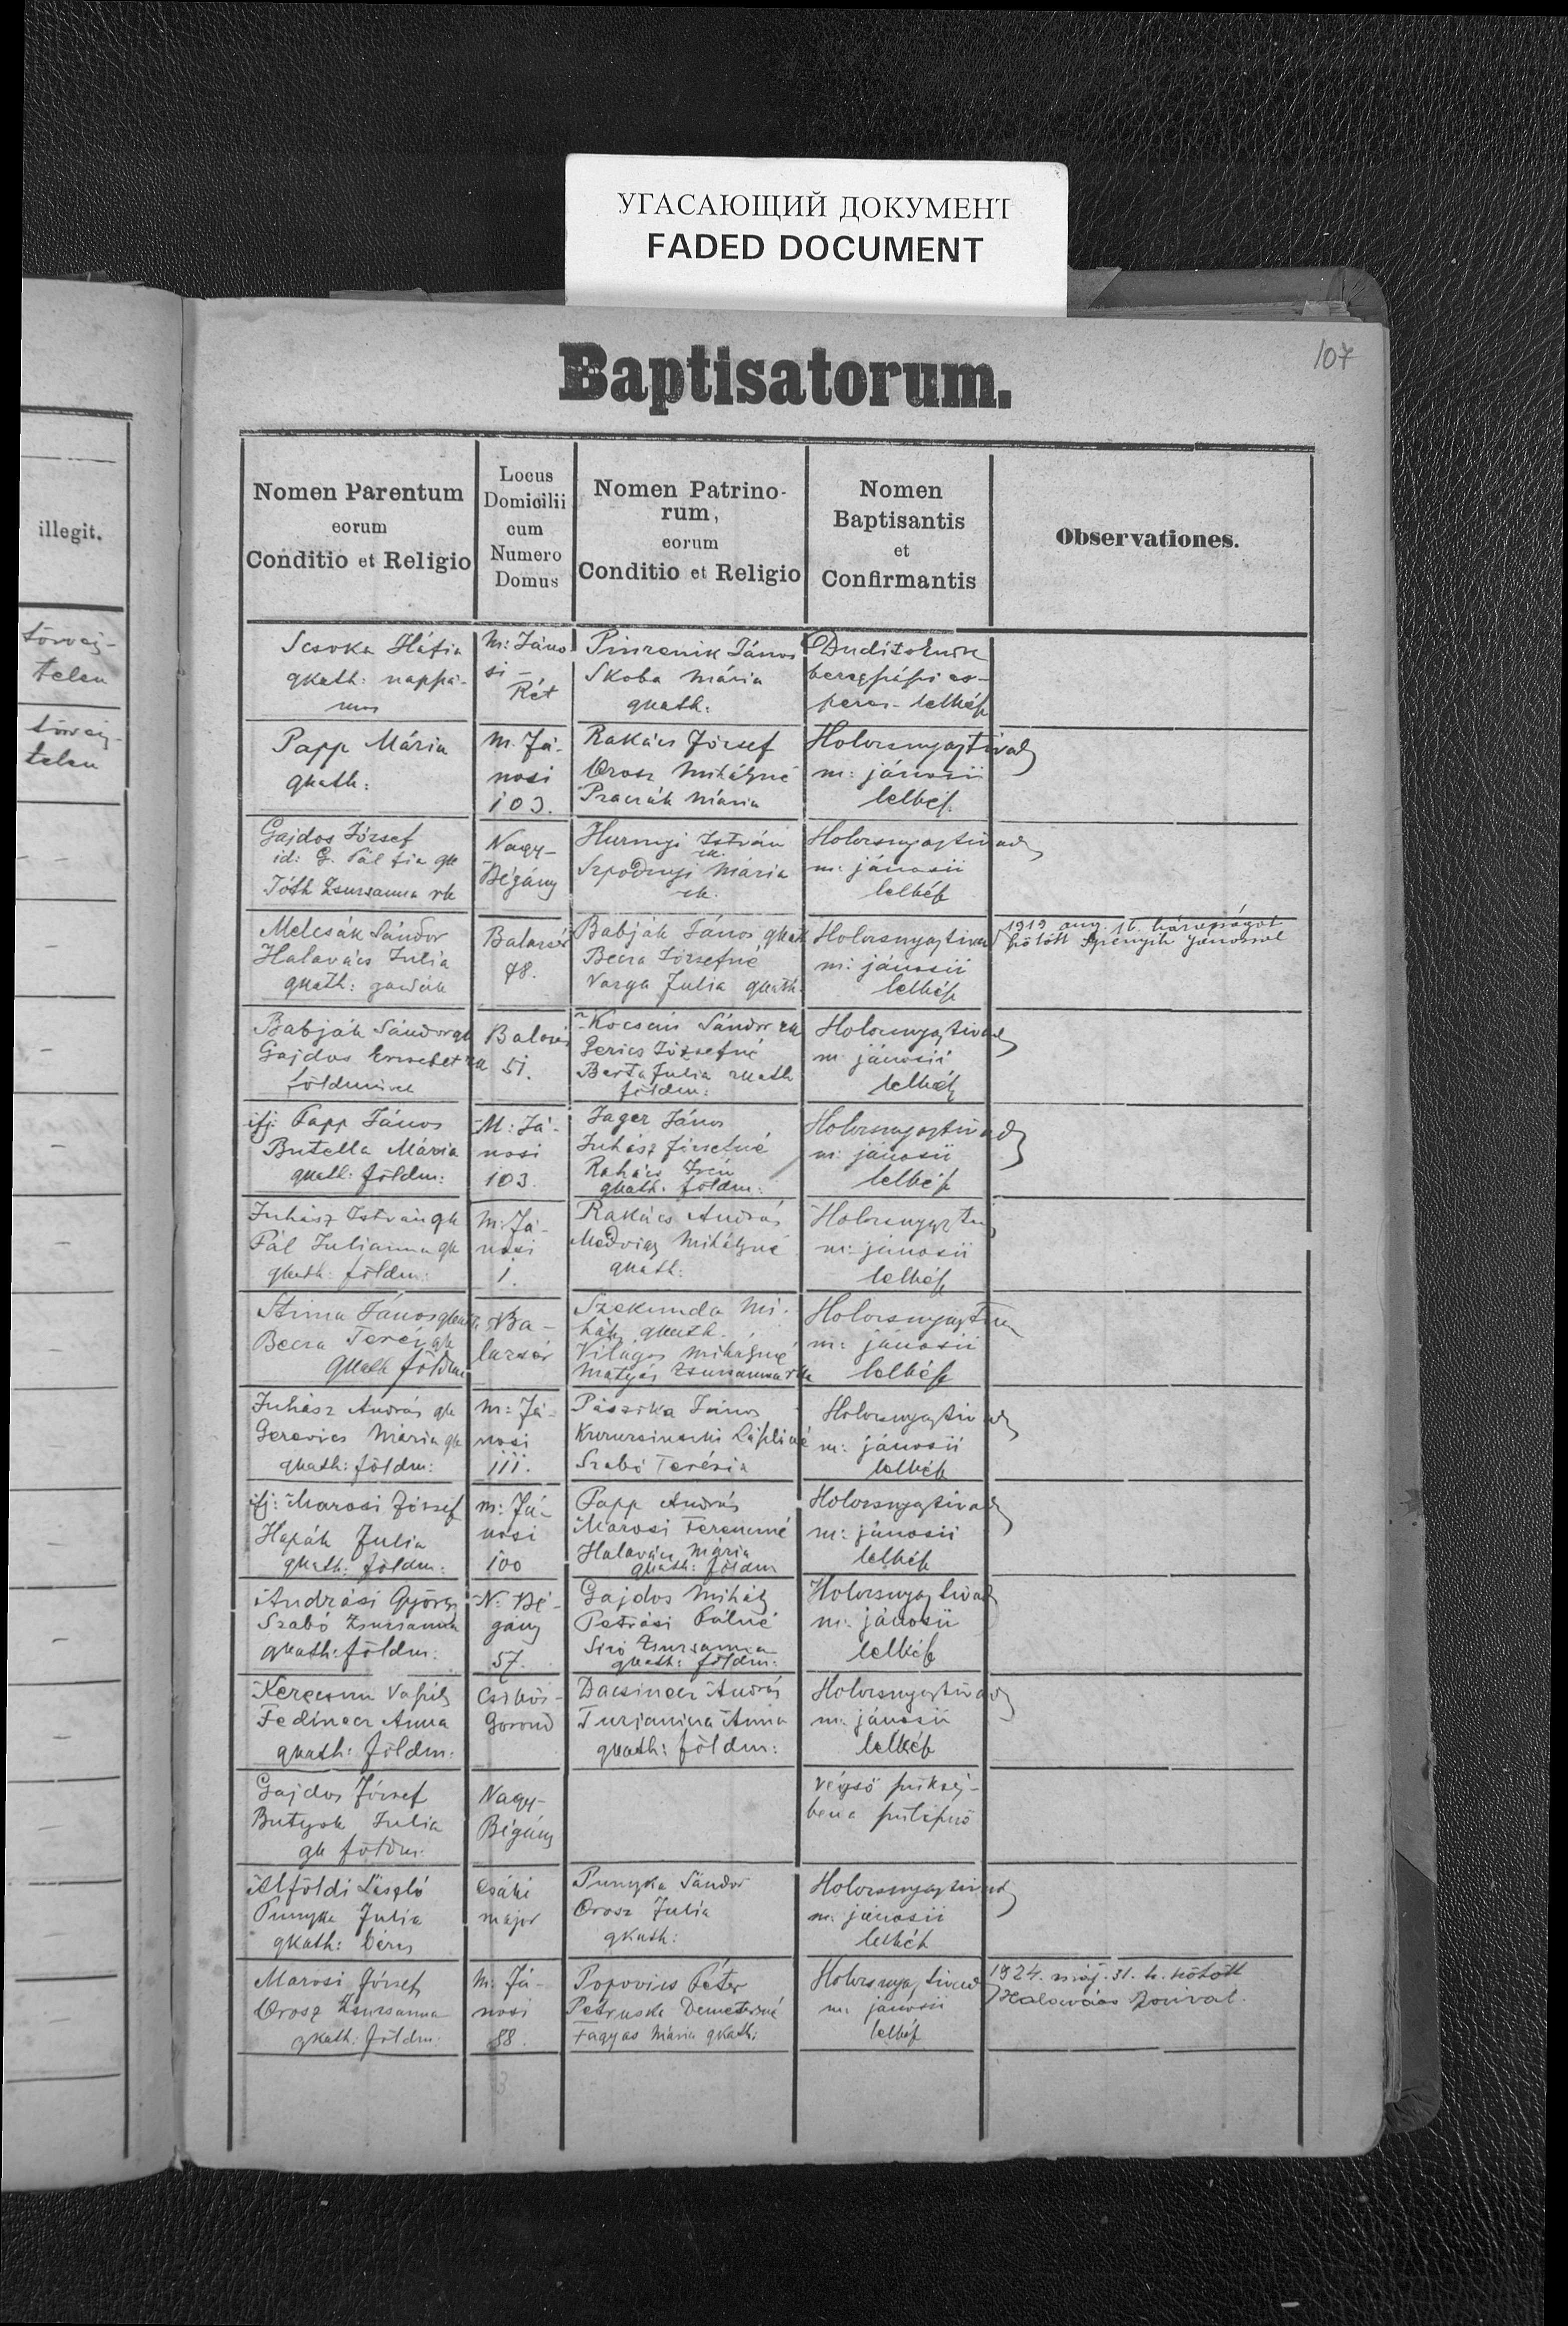 УГАСАЮЩИЙ ДОКУМЕНТ
FADED DOCUMENT
107
Baptisatorum.
illegit.
törvény-
telen
telen
Nomen Parentum
eorum
Conditio et Religio
Locus
Domicilii
cum
Numero
Domus
Nomen Patrino-
rum,
eorum
Conditio et Religio
Nomen
Baptisantis
et
Confirmantis
Observationes.
gkath: nappa-
mos
M: Jáno
si –
Rét
János
Skoba Mária
gkath:
lelkész
Papp Mária
gkath:
M. Já-
nosi
103.
Rakács József
Orosz Mihályné
Mária
Holozsnyay Tivad
m: jánosii
lelkész
Gajdos József
id: G. Pál fia gk
Tóth Zsuzsanna rk
Nagy-
Bégány
István
rk.
Mária
rk.
Holozsnyay Tivad
m: jánosii
lelkész
Melcsák Sándor
Halavács Julia
gkath:
Balazsér
78.
Babják János gkath
Becza Józsefné
Varga Julia gkath.
Holozsnyay Tivad
m: jánosii
lelkész
1919 aug. 16. házasságot
kötött Jánossal
Babják Sándor gk
Gajdos Erzsébet rk
Balazsér
51.
Kocsán Sándor rk
Gerics Józsefné
Barta Julia rkath
földm:
Holozsnyay Tivad
m jánosii
lelkész
ifj: Papp János
Butella Mária
gkath: földm:
M: Já-
nosi
103.
Jager János
Juhász Józsefné
Rakács Irén
gkath. földm:
Holozsnyay Tivad
m: jánosii
lelkész
Juhász István gk
Pál Julianna gk
gkath: földm:
M: Já-
nosi
1.
Rakács András
Medvigy Mihályné
gkath.
Holozsnyay Tiv
m: jánosii
lelkész
János gkath
Becza Teréz gk
gkath földm
Ba-
lazsér
Szekunda Mi-
hály gkath.
Világos Mihályné
Mátyás Zsuzsanna rk
Holozsnyay Tiv
m: jánosii
lelkész
Juhász András gk
Gerevics Mária gk
gkath: földm:
M: Já-
nosi
111.
Pászika János
Szabó Terézia
Holozsnyay Tivad
m: jánosii
lelkész
ifj: Marosi József
Hapák Julia
gkath: földm:
M: Já-
nosi
100
Papp András
Marosi Ferencné
Halavács Mária
gkath: földm
Holozsnyay Tivad
m: jánosii
lelkész
Andrási György
Szabó Zsuzsanna
gkath: földm:
N: Bé-
gány
57.
Gajdos Mihály
Petrási Pálné
Zsuzsanna
gkath: földm:
Holozsnyay Tivad
m: jánosii
lelkész
Fedinecz Anna
gkath: földm:
Csikós-
Gorond
Dacsinecz András
Turjanica Anna
gkath: földm:
Holozsnyay Tivad
m: jánosii
lelkész
Gajdos József
Butyok Julia
gk földm:
Nagy-
Bégány
végső
Alföldi László
Punyka Julia
gkath: béres
Csáki
major
Punyka Sándor
Orosz Julia
gkath:
Holozsnyay Tivad
m: jánosii
lelkész
Marosi József
Orosz Zsuzsanna
gkath: földm:
M: Já-
nosi
88.
Popovics Péter
Petruska Demeterné
Fagyas Mária gkath:
Holozsnyay Tivad
m: jánosii
lelkész
1924. máj. 31. h. kötött
Halavács